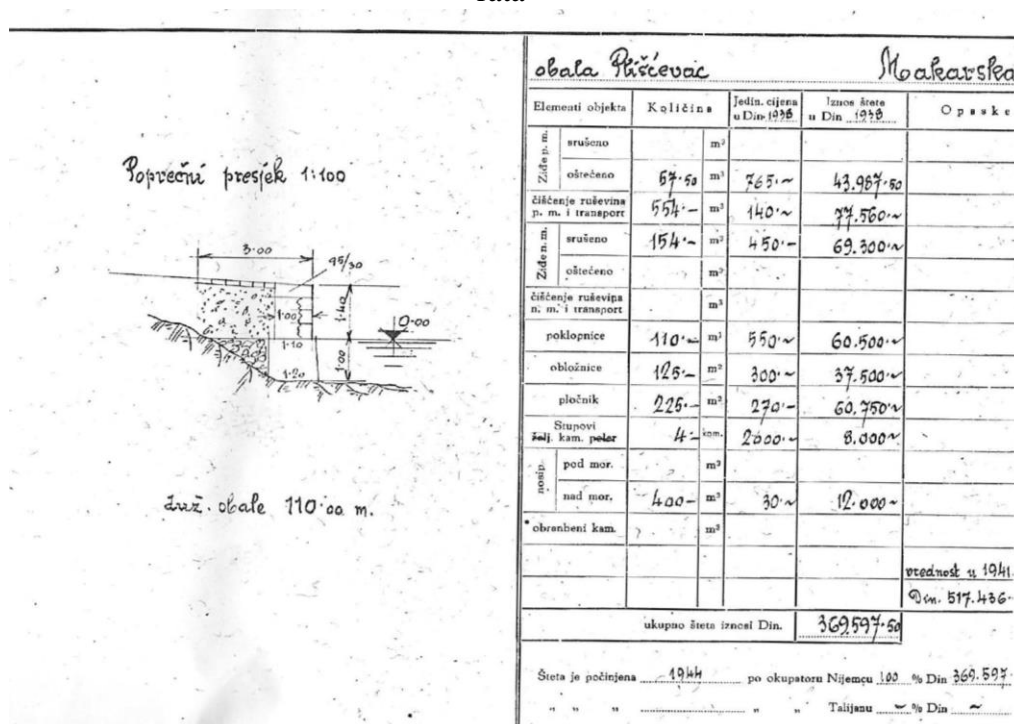 Poprečni presjek 1:100
3·00
45/30
1·00
1·40
0·00
1·10
1·00
1·20
duž. obale 110·00 m.
obala Plišćevac Makarska
Elementi objekta Količina Jedin. cijena u Din 1938 Iznos štete u Din 1938 Opaske
Ziđe p. m.
srušeno m³
oštećeno 57·50 m³ 765·~ 43.987·50
čišćenje ruševina p. m. i transport 554·– m³ 140·~ 77.560·~
Ziđe n. m.
srušeno 154·~ m³ 450·– 69.300·~
oštećeno m³
čišćenje ruševina n. m. i transport m³
poklopnice 110·~ m³ 550·~ 60.500·~
obložnice 125·– m² 300·~ 37.500·~
pločnik 225·– m² 270·– 60.750·~
Stupovi
želj. kam. poler 4·– kom. 2000·~ 8.000~
nosip.
pod mor. m³
nad mor. 400– m³ 30·~ 12.000~
obranbeni kam. m³
vrednost u 1941.
Din. 517.436·
ukupno šteta iznosi Din. 369.597·50
Šteta je počinjena 1944 po okupatoru Nijemcu 100 % Din 369.597·
" " " " " Talijanu ~ % Din ~